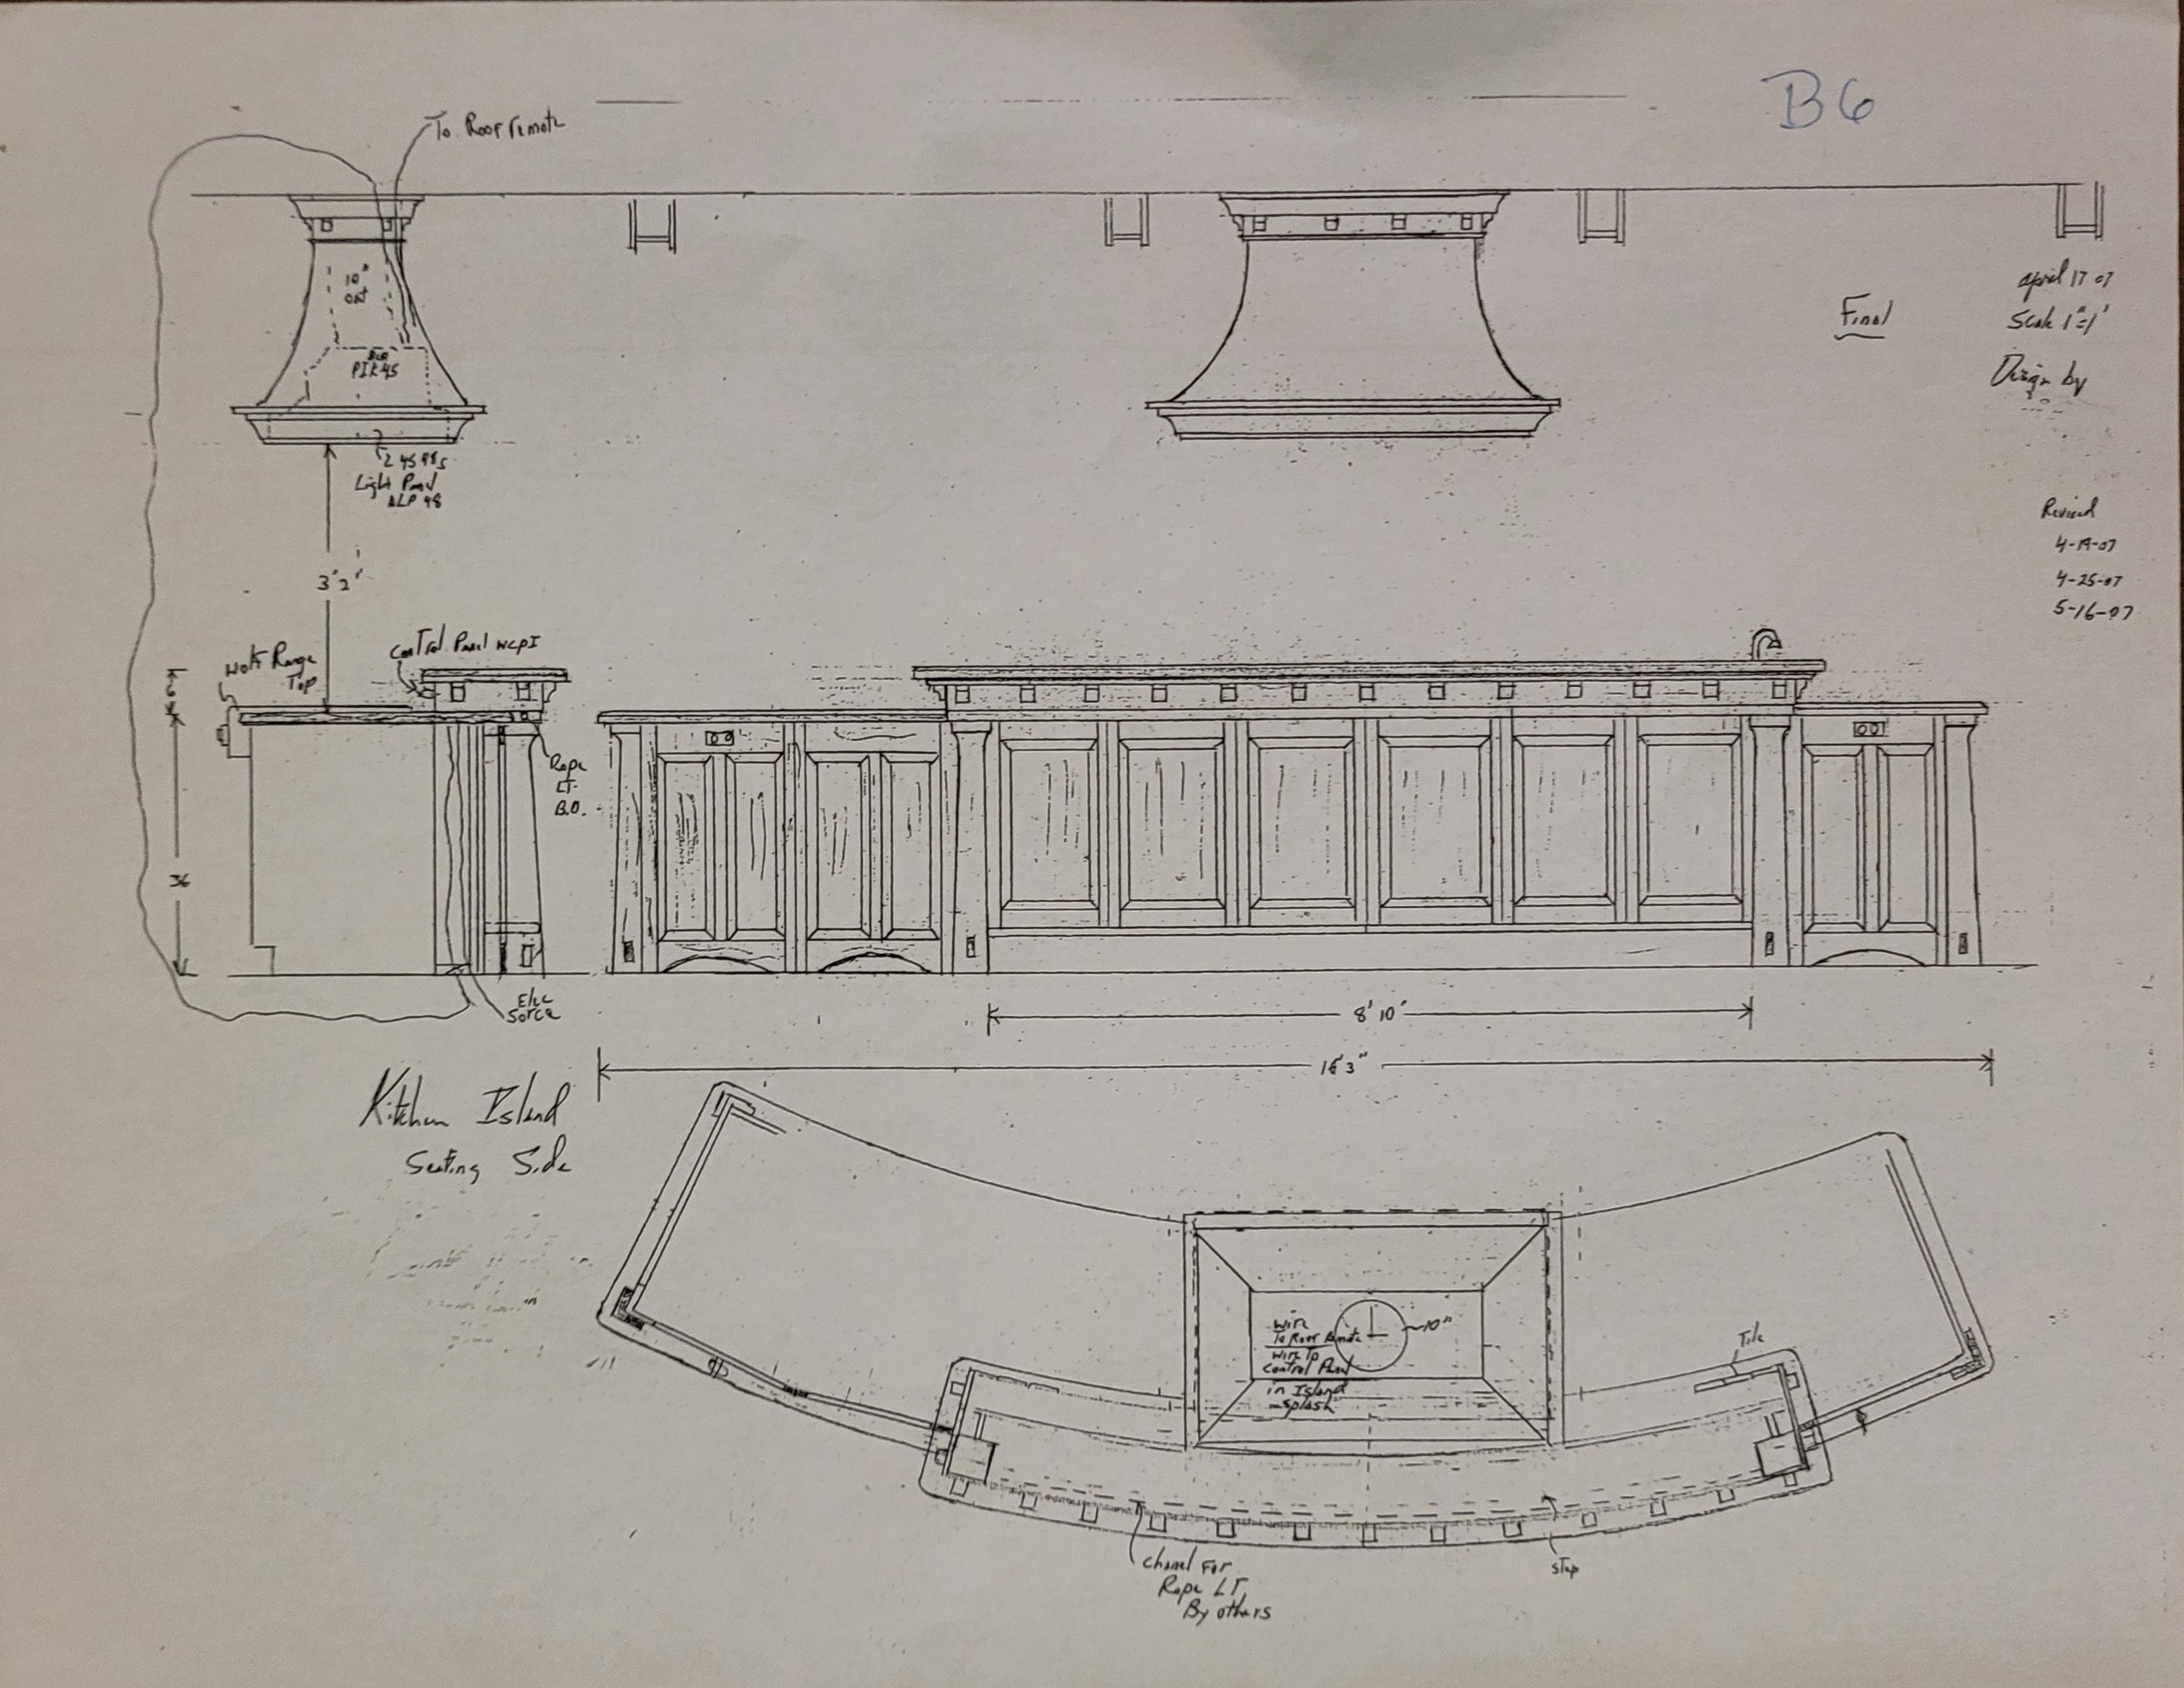 B6
To Roof remote
10"
PIK45
Light Panel
ALP 48
3'2"
Final
April 17 07
Scale 1"=1'
Design by
Revised
4-19-07
4-25-07
5-16-07
Control Panel WCPI
Wolf Range
Top
6
36
Rope
LT-
B.O.
Elec
Sorce
8' 10"
16'3"
Kitchen Island
Seating Side
Wire
To Roof Remote
Wire To
Control Panel
in Island
splash
10"
Tile
Chanel For
Rope LT,
By others
Step